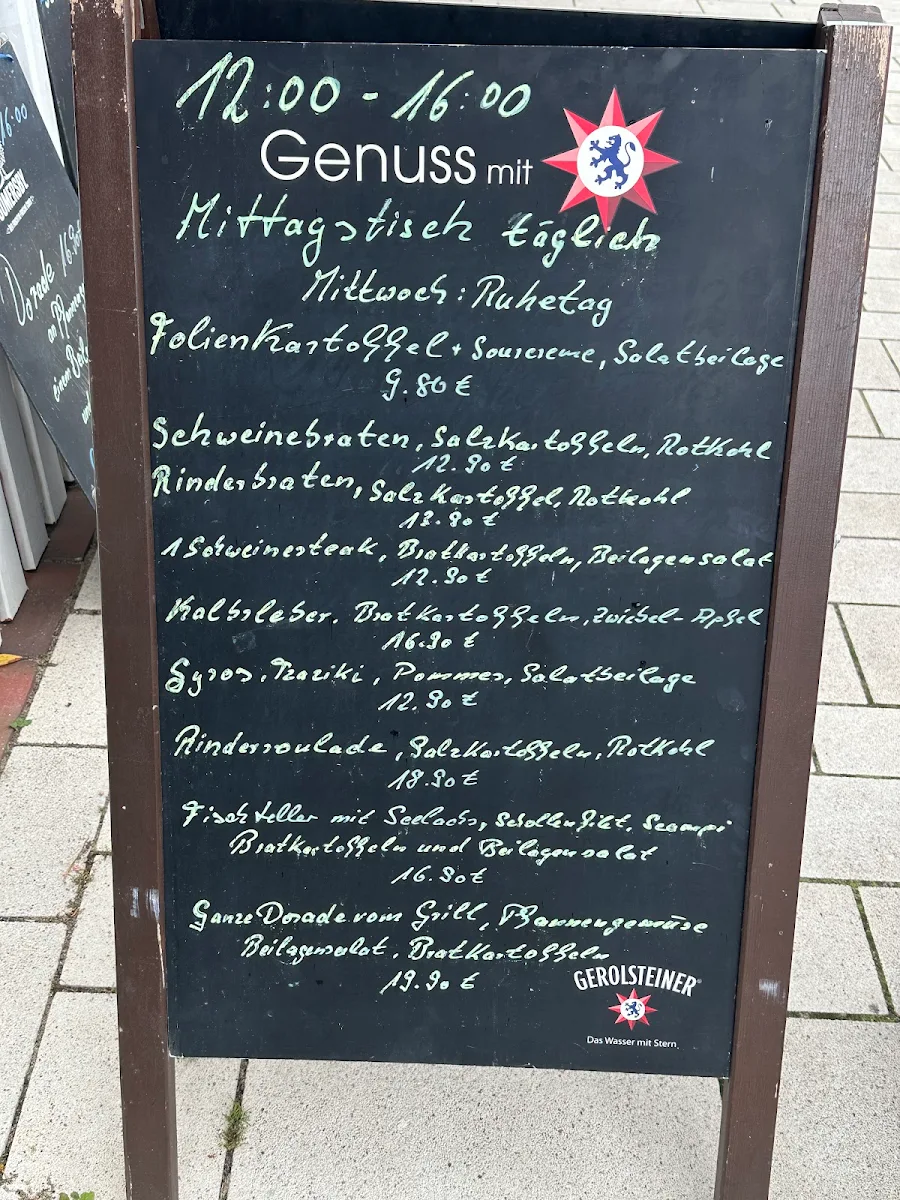 12:00 - 16:00
Genuss mit
Mittagstisch täglich
Mittwoch: Ruhetag
Folienkartoffel + Sourcreme, Salatbeilage
9.80 €
Schweinebraten, Salzkartoffeln, Rotkohl
12.90 €
Rinderbraten, Salzkartoffel, Rotkohl
13.90 €
1 Schweinesteak, Bratkartoffeln, Beilagensalat
12.90 €
Kalbsleber, Bratkartoffeln, Zwiebel-Apfel
16.90 €
Gyros, Tzaziki, Pommes, Salatbeilage
12.90 €
Rinderroulade, Salzkartoffeln, Rotkohl
18.90 €
Fischteller mit Seelachs, Schollenfilet, Scampi
Bratkartoffeln und Beilagensalat
16.90 €
Ganze Dorade vom Grill, Pfannengemüse
Beilagensalat, Bratkartoffeln
19.90 €
GEROLSTEINER®
Das Wasser mit Stern
16:00
Dorade 16.90
einem